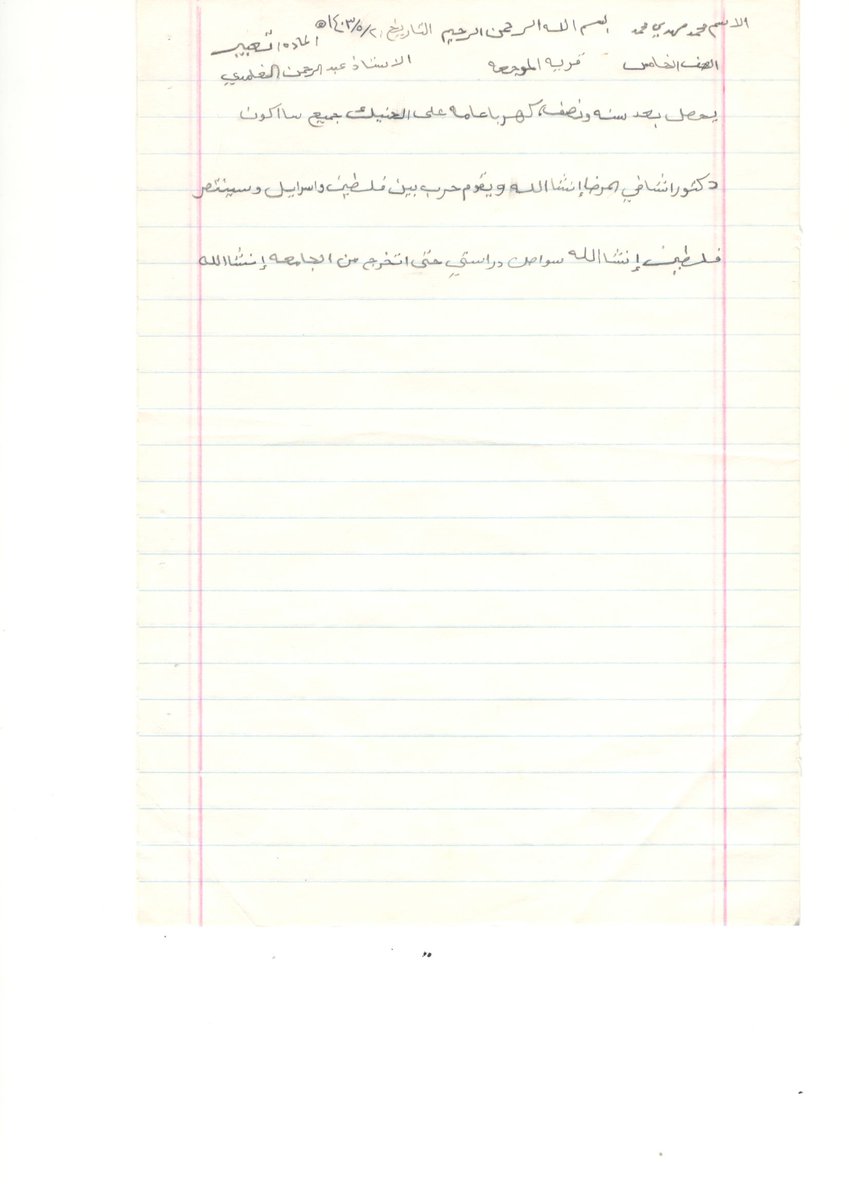 الاسم محمد مهدي محمد بسم الله الرحمن الرحيم التاريخ ٢١/٥/١٤٠٣ه المادة التعبير
الصف الخامس قريه الموجعه الاستاذ عبد الرحمن الغلمبي
يحصل بعد سنه ونصف كهربا عامه على جميع سااكون
دكتورا شافي المرضا إنشاالله ويقوم حرب بين فلسطين واسرايل وسينتصر
فلسطين إنشاالله سواصل دراستي حتى اتخرج من الجامعه إنشاالله